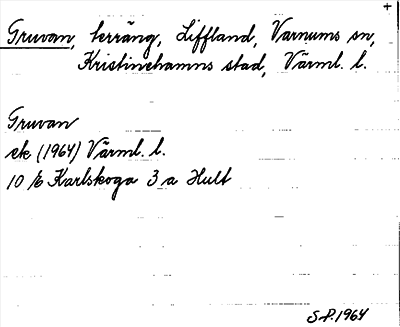 +
Gruvan, terräng, Liffland, Varnums sn,
Kristinehamns stad, Värml. l.
Gruvan
ek (1964) Värml. l.
10 / 6 Karlskoga 3 a Hult
S.P. 1964